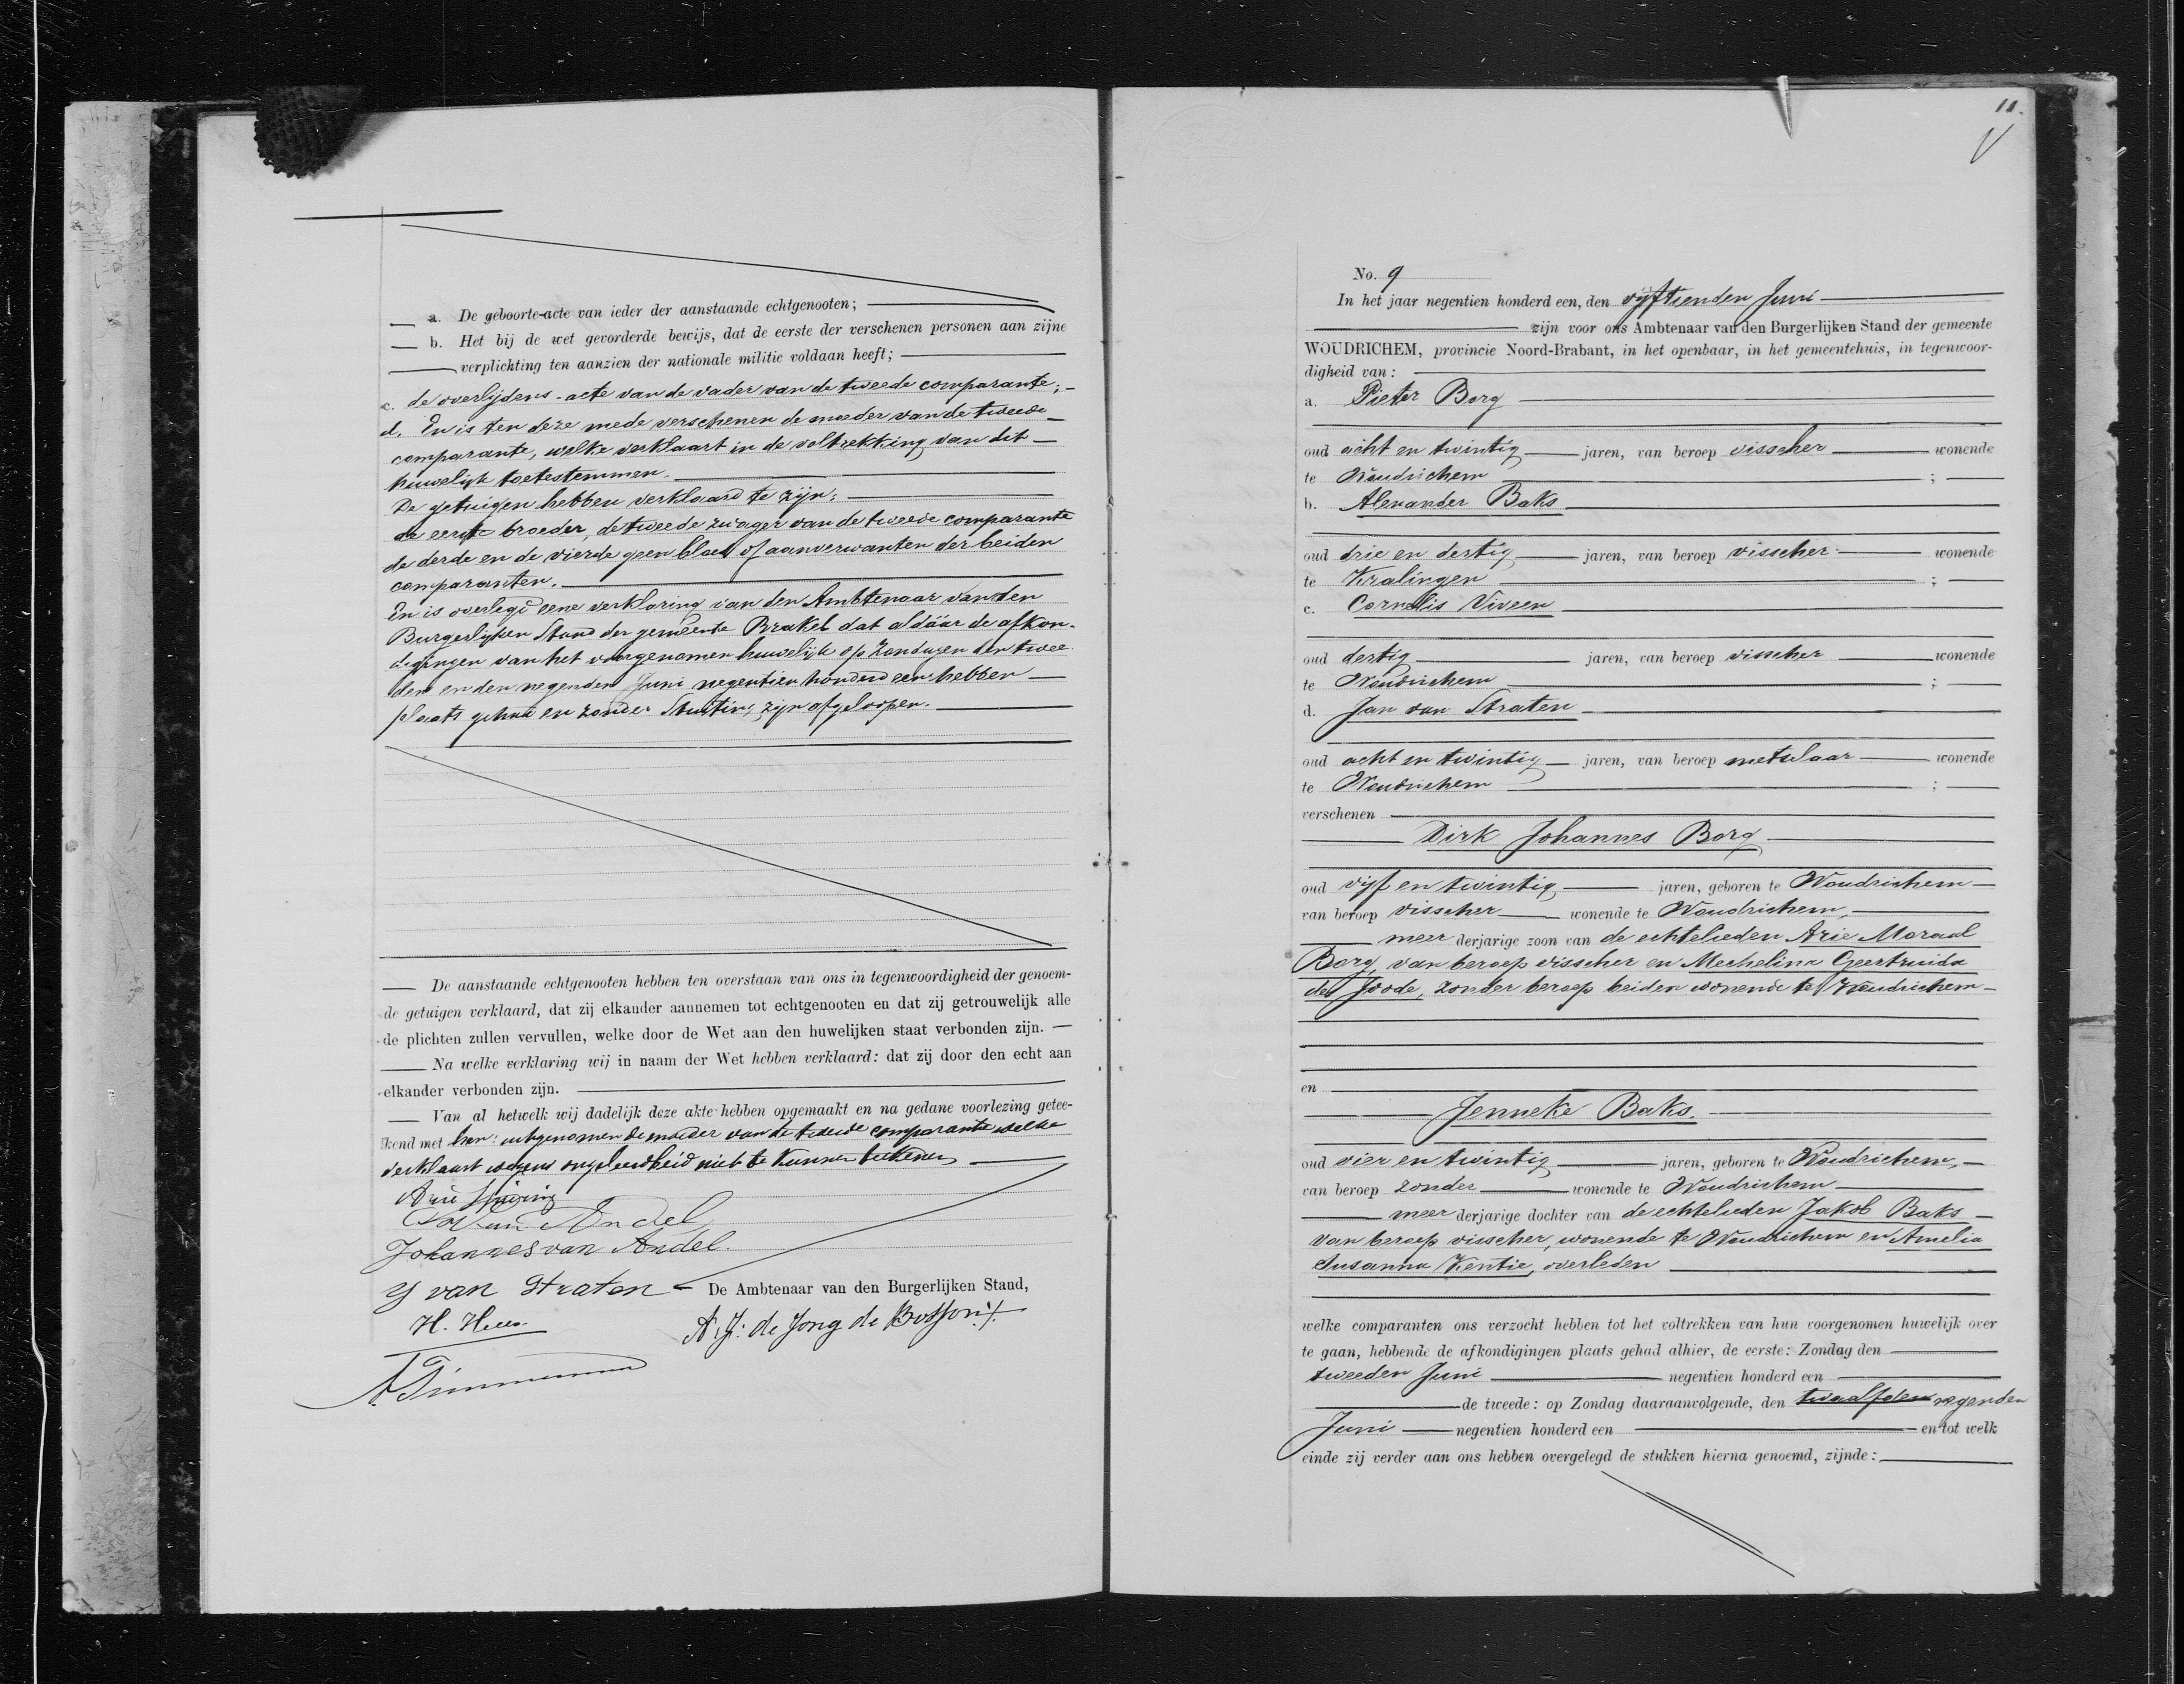 a. De geboorte-acte van ieder der aanstaande echtgenooten;
b. Het bij de wet gevorderde bewijs, dat de eerste der verschenen personen aan zijne
verplichting ten aanzien der nationale militie voldaan heeft;
c. de overlijdens-acte van de vader van de tweede comparante;
d. En is ten deze mede verschenen de moeder van de tweede
comparante, welke verklaart in de voltrekking van dit
huwelijk toetestemmen.
De getuigen hebben verklaard te zijn:
de eerste broeder, de tweede zwager van de tweede comparante
de derde en de vierde geen bloed of aanverwanten der beiden
comparanten.
En is overlegd eene verklaring van den Ambtenaar van den
Burgerlijken Stand der gemeente Brakel dat aldaar de afkon-
digingen van het voorgenomen huwelijk op Zondagen den twee
den en den negenden Juni negentien honderd een hebben
plaats gehad en zonder stuiting zijn afgeloopen.
De aanstaande echtgenooten hebben ten overstaan van ons in tegenwoordigheid der genoem-
de getuigen verklaard, dat zij elkander aannemen tot echtgenooten en dat zij getrouwelijk alle
de plichten zullen vervullen, welke door de Wet aan den huwelijken staat verbonden zijn.
Na welke verklaring wij in naam der Wet hebben verklaard: dat zij door den echt aan
elkander verbonden zijn.
Van al hetwelk wij dadelijk deze akte hebben opgemaakt en na gedane voorlezing getee-
kend met hen: uitgenomen de moeder van de tweede comparante welke
verklaart wegens ongeleerdheid niet te kunnen teekenen
Arie
van Andel
Johannes van Andel.
J van Straten
De Ambtenaar van den Burgerlijken Stand,
H.
A. J: de Jong de
11.
No. 9
In het jaar negentien honderd een, den vijftienden Juni
zijn voor ons Ambtenaar van den Burgerlijken Stand der gemeente
WOUDRICHEM, provincie Noord-Brabant, in het openbaar, in het gemeentehuis, in tegenwoor-
digheid van:
a. Pieter Borg
oud acht en twintig jaren, van beroep visscher wonende
te Woudrichem ;
b. Alexander Baks
oud drie en dertig jaren, van beroep visscher wonende
te Kralingen ;
c. Cornelis Viveen
oud dertig jaren, van beroep visscher wonende
te Woudrichem ;
d. Jan van Straten
oud acht en twintig jaren, van beroep metselaar wonende
te Woudrichem ;
verschenen
Dirk Johannes Borg
oud vijf en twintig jaren, geboren te Woudrichem
van beroep visscher wonende te Woudrichem,
meer derjarige zoon van de echtelieden Arie Moraal
Borg, van beroep visscher en Merhelina Geertruida
de Joode, zonder beroep beiden wonende te Woudrichem
en
Jenneke Baks.
oud vier en twintig jaren, geboren te Woudrichem,
van beroep zonder wonende te Woudrichem
meer derjarige dochter van de echtelieden Jakob Baks
van beroep visscher, wonende te Woudrichem en Amelia
Susanna Kentie, overleden
welke comparanten ons verzocht hebben tot het voltrekken van hun voorgenomen huwelijk over
te gaan, hebbende de afkondigingen plaats gehad alhier, de eerste: Zondag den
tweeden Juni negentien honderd een
de tweede: op Zondag daaraanvolgende, den twaalfden negenden
Juni negentien honderd een en tot welk
einde zij verder aan ons hebben overgelegd de stukken hierna genoemd, zijnde: